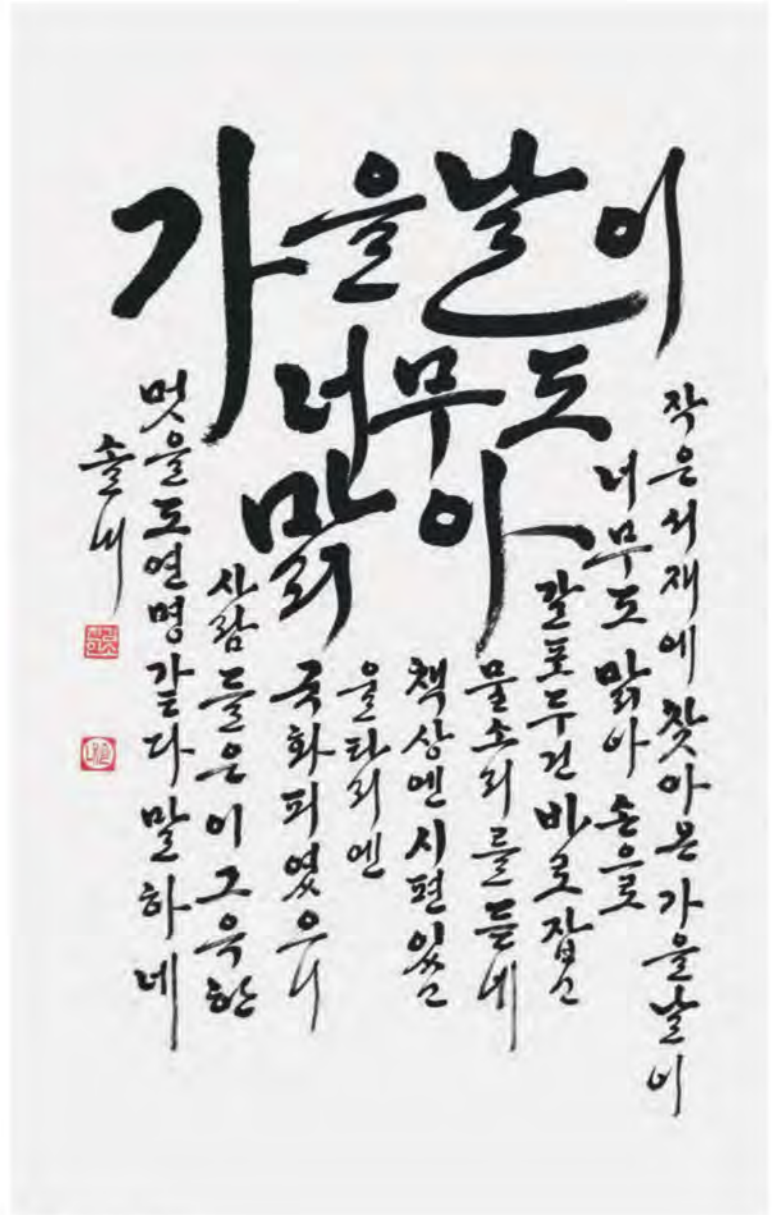 가을날이
너무도
맑아
작은서재에 찾아온 가을날이
너무도 맑아 손으로
갈포두건 바로잡고
물소리를 듣네
책상엔 시편 있고
울타리엔
국화 피였으니
사람들은 이 그윽한
멋을 도연명 같다 말하네